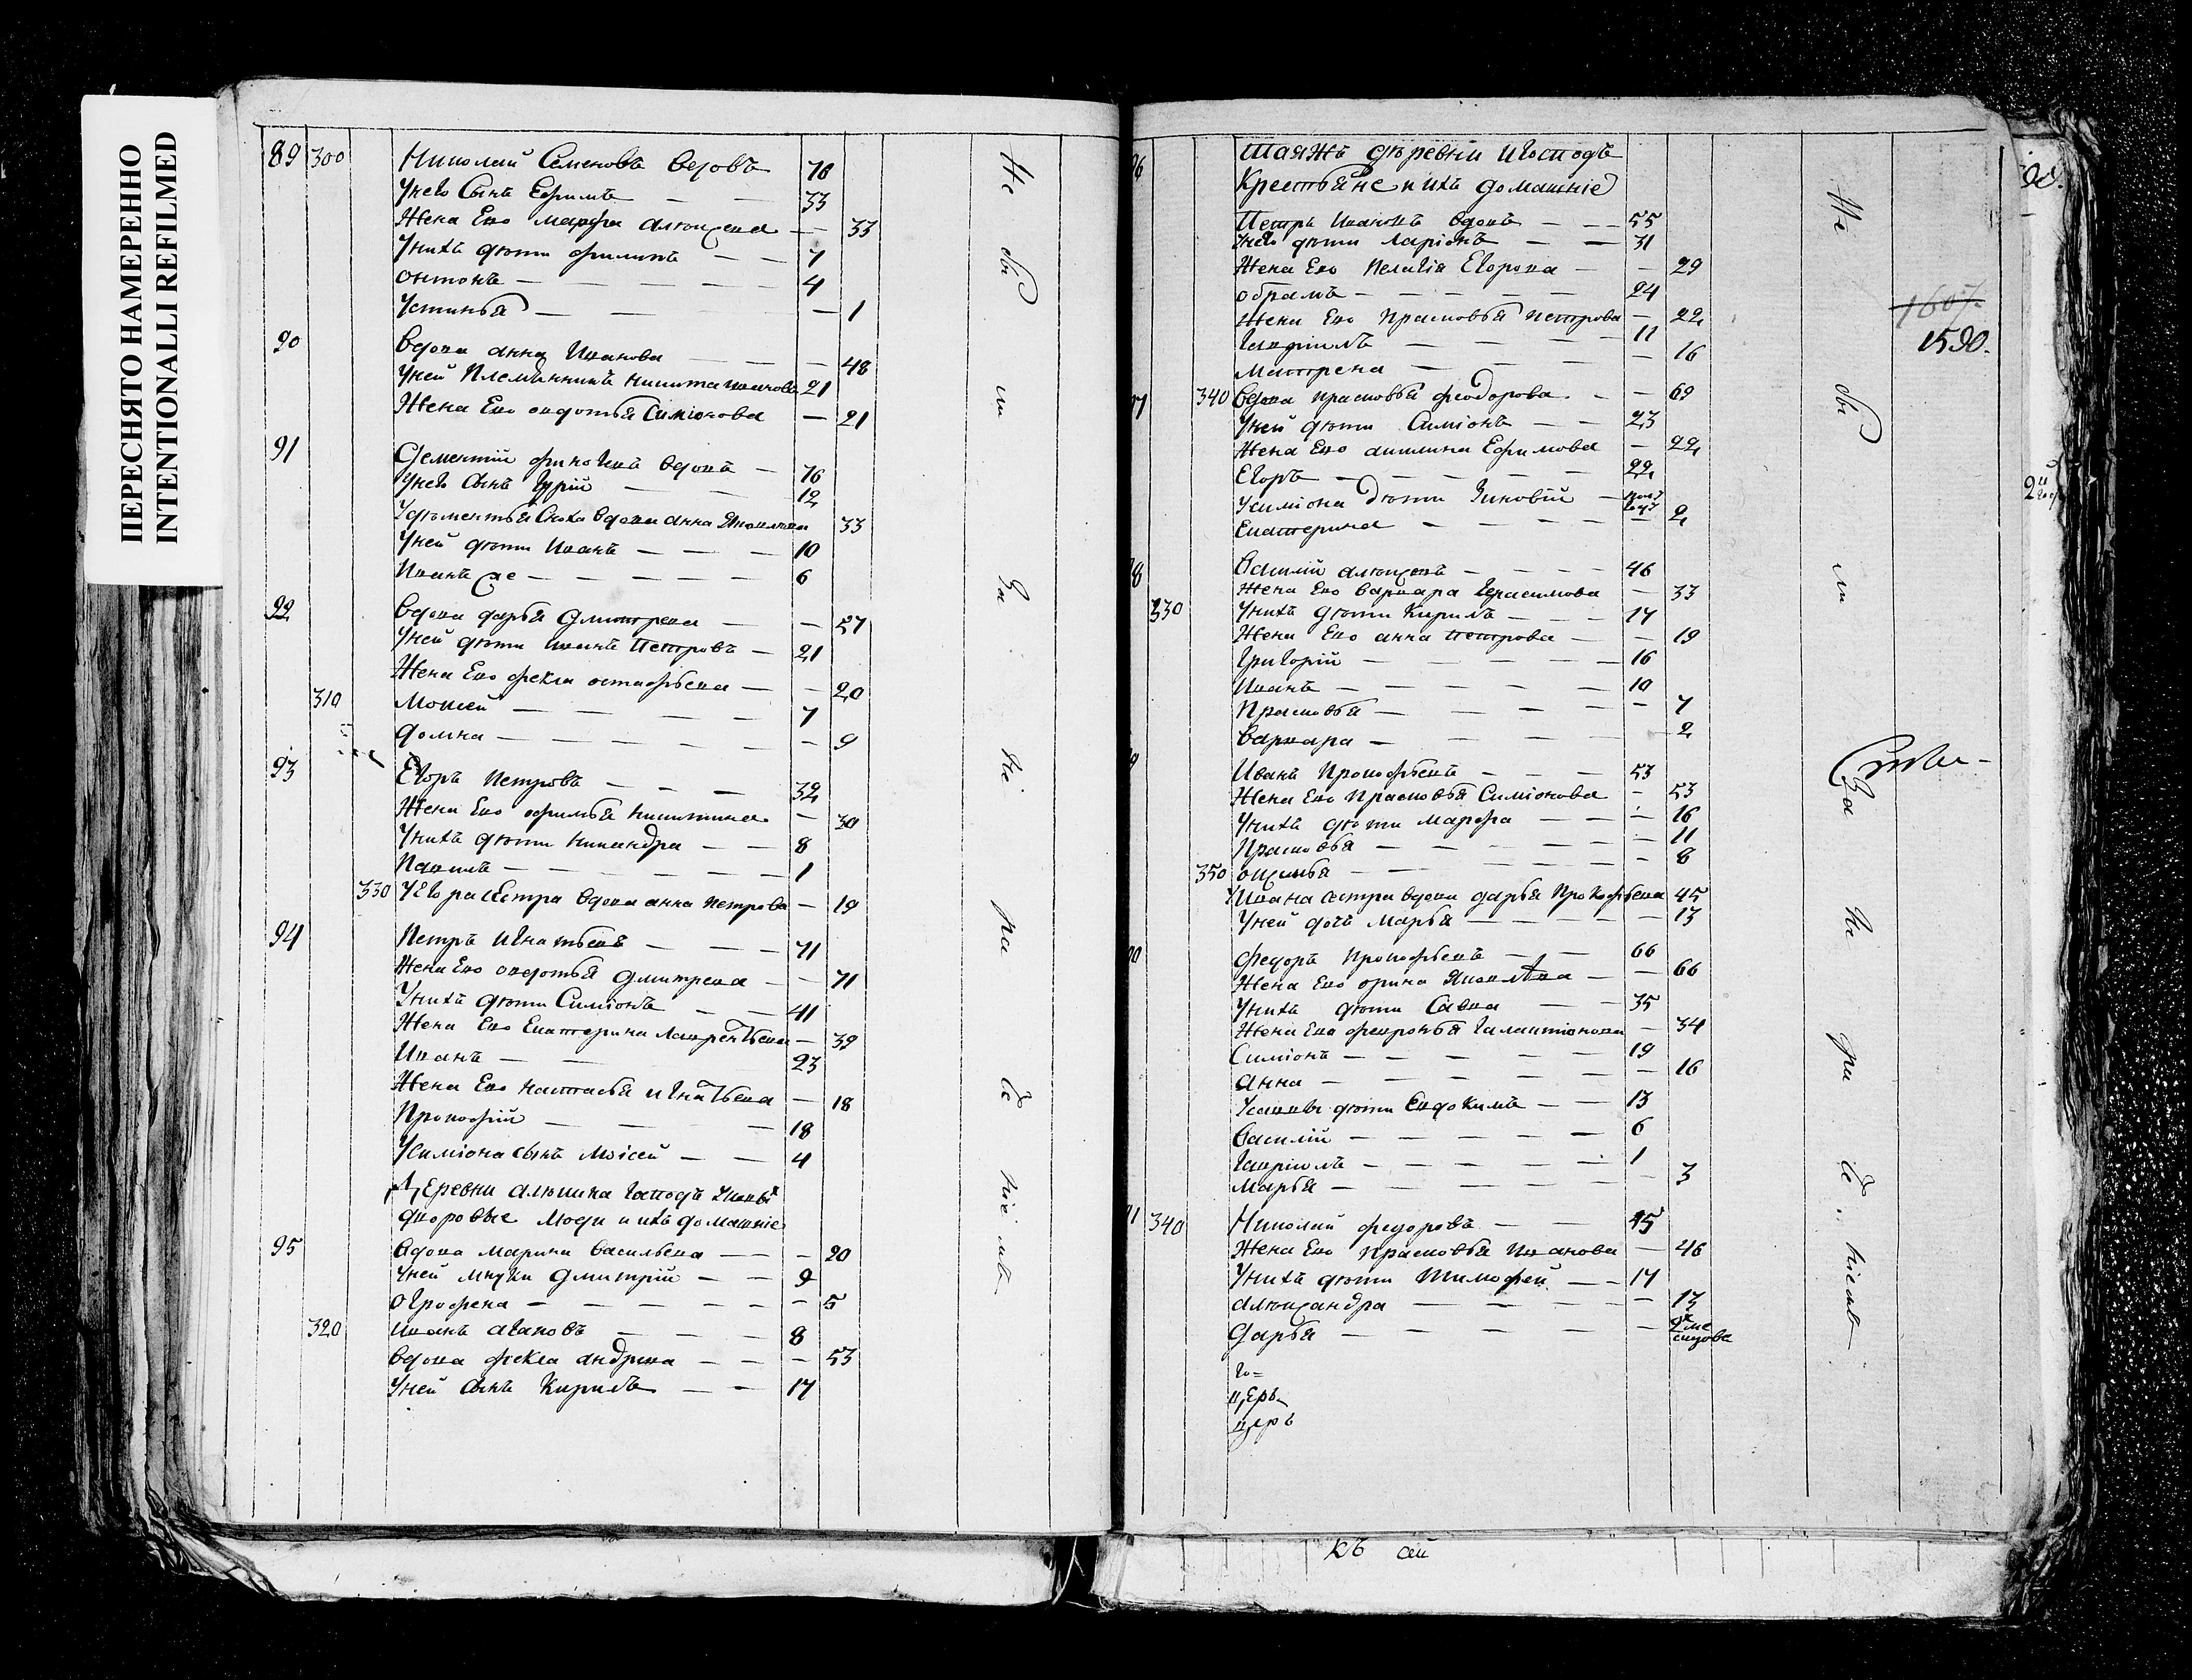 ПЕРЕСНЯТО НАМЕРЕННО
INTENTIONALLI REFILMED
89 300 Николай Семеновъ вдовъ 70
Унево Сынъ Ефимъ 33
Жена Ево марфа алексева 33
Унихъ дѣти филипъ 7
онтонъ 4
Устинья 1
90 вдова анна Иванова 48
Уней Племянникъ никита ивановъ 21
Жена Ево овдотья Симіонова 21
91 Дементій вдовъ 76
Унево Сынъ Гурій 12
Удементья Сноха вдова анна Яковлева 33
Уней дѣти Иванъ 10
Иванъ же 6
92 вдова дарья дмитрева 57
Уней дѣти иванъ Петровъ 21
Жена Ево фекла остафьева 20
310 Моисей 7
домна 9
93 Егоръ Петровъ 32
Жена Ево офимья никитина 30
Унихъ дѣти никандра 8
Павилъ 1
330 УЕгора сЕстра вдова анна петрова 19
94 Петръ игнатьевъ 71
Жена Ево овдотья дмитрева 71
Унихъ дѣти Симіонъ 41
Жена Ево Екатерина Лаврентьева 39
Иванъ 23
Жена Ево настасья игнатьева 18
Прокофій 18
Усиміона сынъ Моісей 4
дЕревни алюшина господъ
дворовые люди и ихъ домашніе
95 вдова марина васильева 20
Уней внуки дмитрій 9
огрофена 5
320 иванъ агаповъ 8
вдова фекла андрева 53
Уней сынъ Кирилъ 17
Не обы ли За не ра че ніемъ
таяжъ деревни игосподъ
Крестьяне и ихъ домашніе
96 Петръ Ивановъ вдовъ 55
Унево дѣти ларіонъ 31
Жена Ево Пелагія Егорова 29
обрамъ 24
Жена Ево Прасковья Петрова 22
Гавріилъ 11
Матрена 16
97 340 вдова прасковья феодорова 69
Уней дѣти Симіонъ 23
Жена Ево акилина Ефимова 22
Егоръ 22
Усиміона дѣти Зиновій
Екатерина 2
98 Василій алексевъ 46
Жена Ево варвара Герасимова 33
330 Унихъ дѣти Кирилъ 17
Жена Ево анна петрова 19
Григорій 16
Иванъ 10
Прасковья 7
варвара 2
Иванъ Прокофьевъ 53
Жена Ево Прасковья Симіонова 53
Унихъ дѣти марфа 16
Прасковья 11
350 офимья 8
Уивана сестра вдова дарья Прокофьева 45
Уней дочь марья 13
федоръ прокофьевъ 66
Жена Ево орина Яковлева 66
Унихъ дѣти Савва 35
Жена Ево февронья Галактіонова 34
Симіонъ 19
анна 16
Усаввы дѣти Евдокимъ 13
василій 6
Гавріилъ 1
марья 3
340 Николай федоровъ 45
Жена Ево прасковья ивановна 46
Унихъ дѣти Тимофей 17
александра 13
дарья
го=
цЕрь
церь
Не обы ли За не ра че ніемъ
1607.
1590.
къ ай